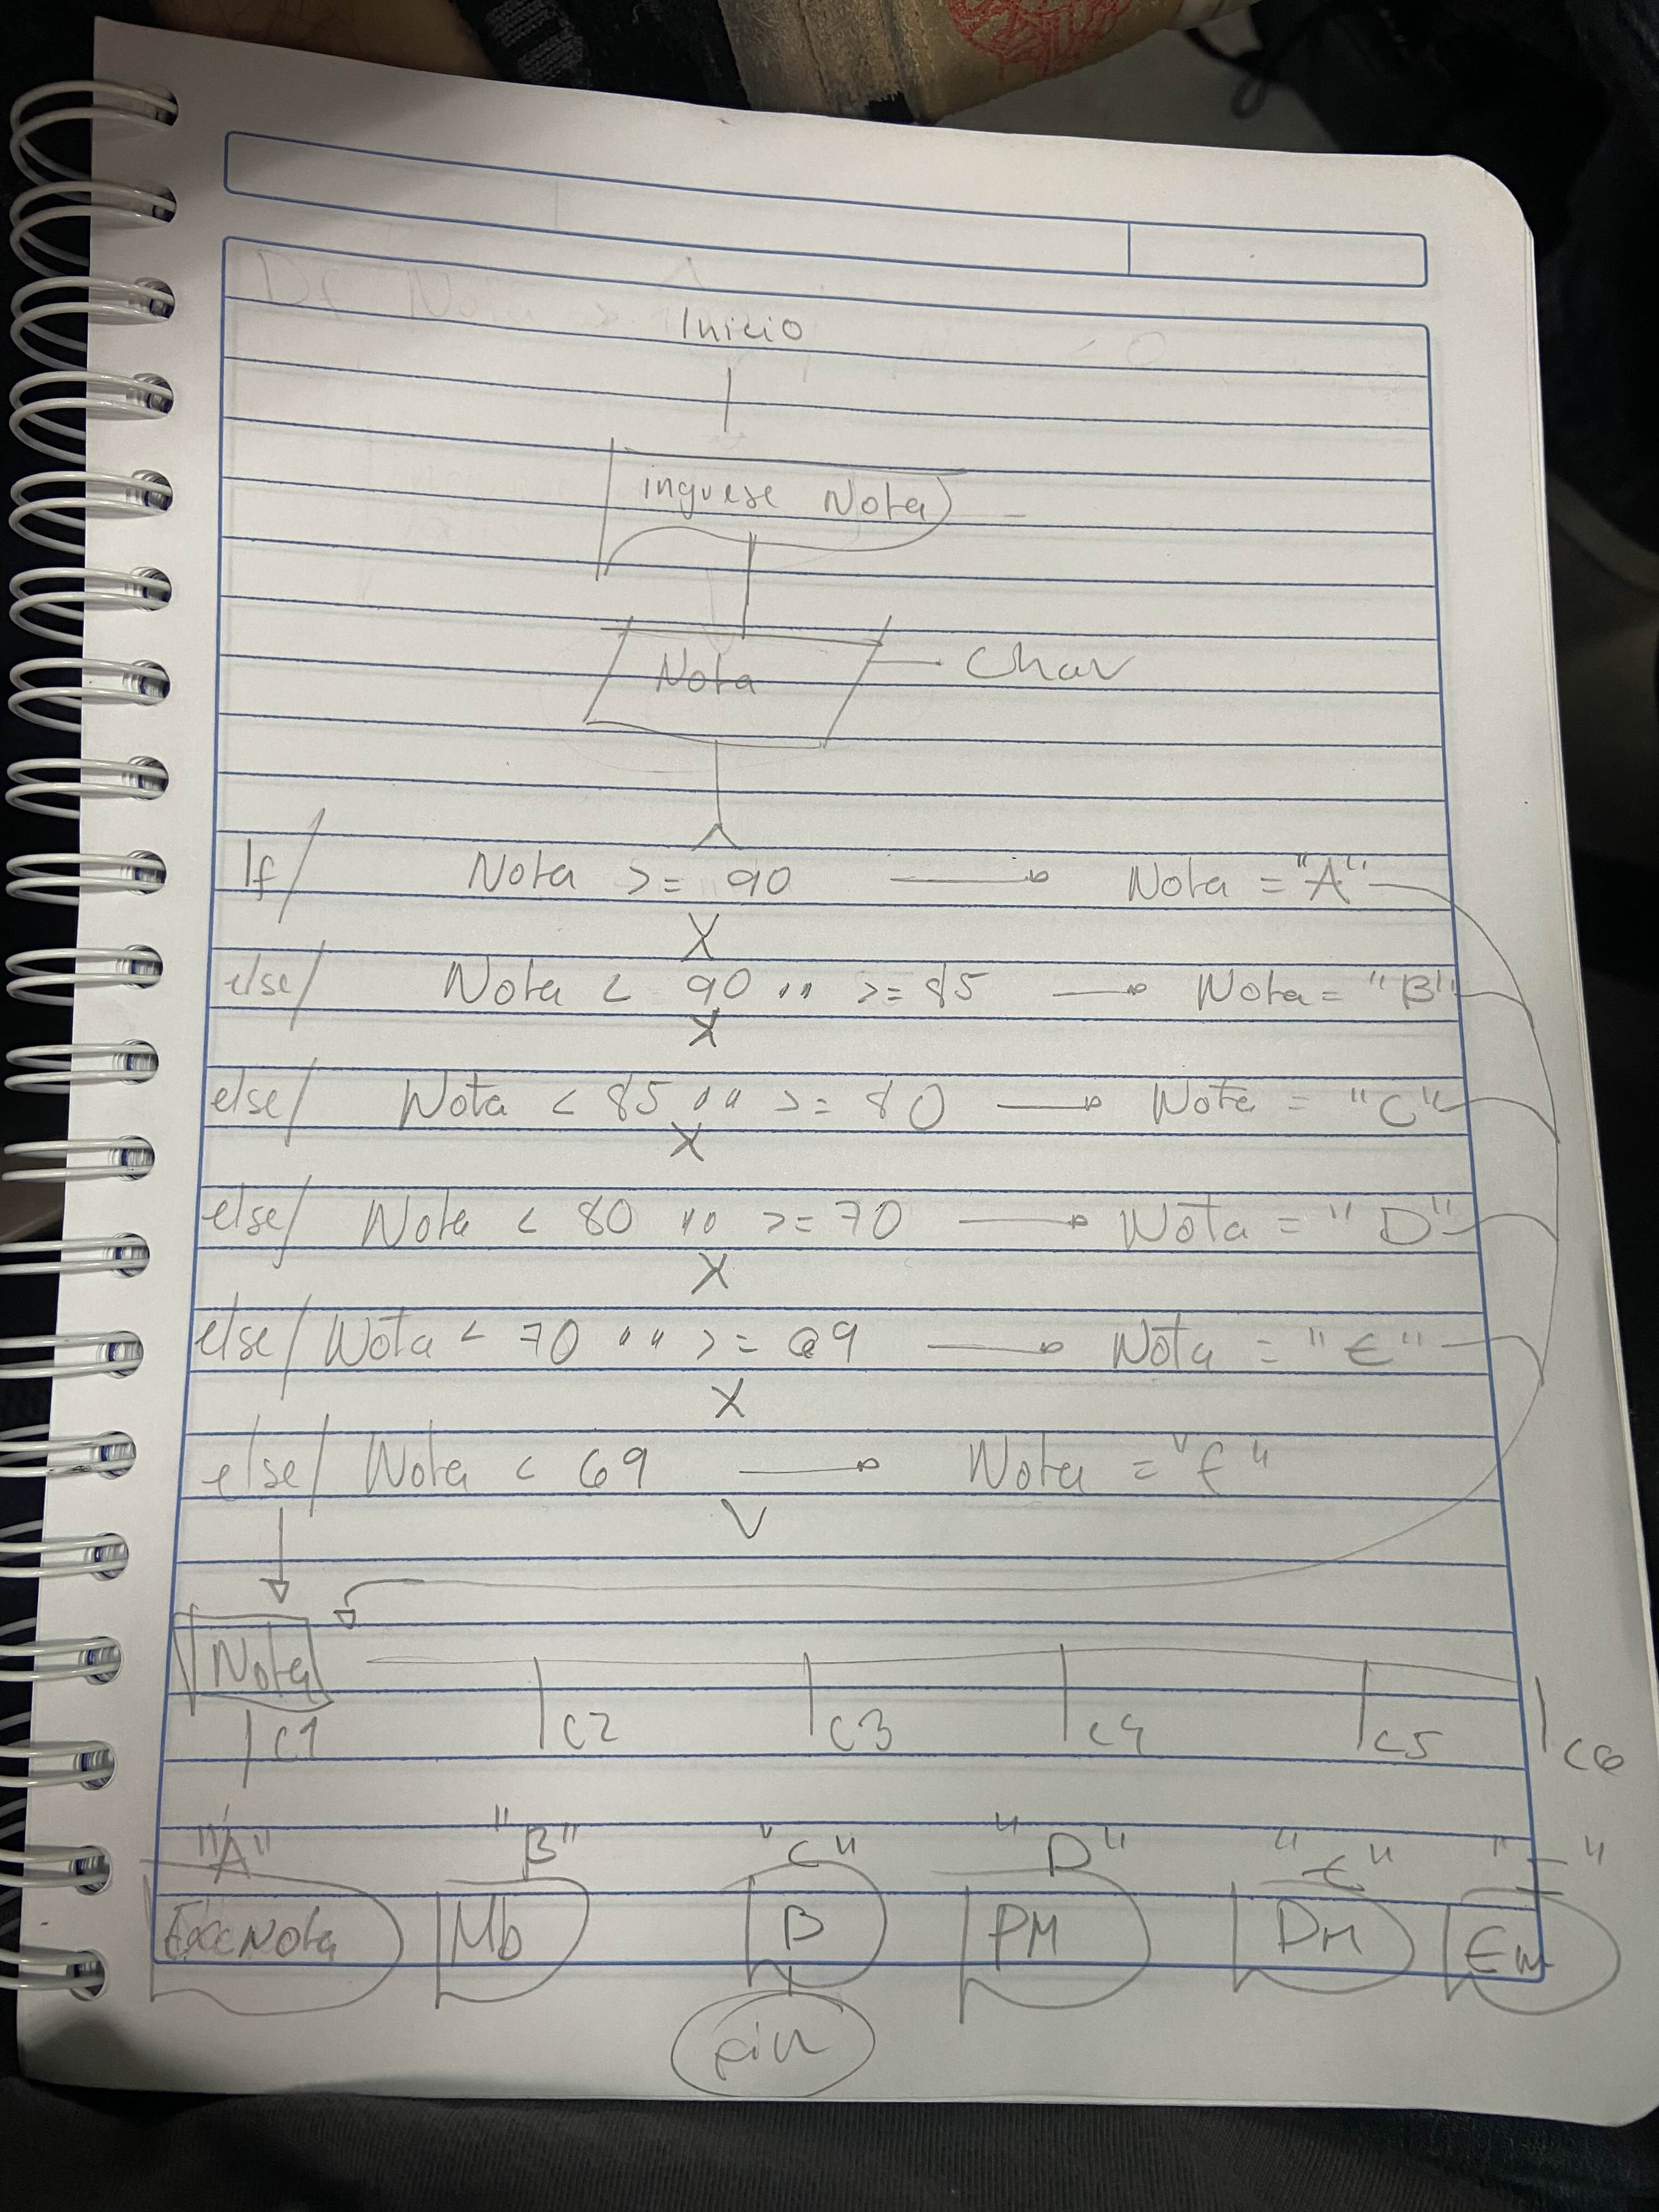 Inicio
ingrese Nota
Nota — Char
If/ Nota >= 90 → Nota = "A"
X
else/ Nota < 90 "" >= 85 → Nota = "B"
X
else/ Nota < 85 "" >= 80 → Nota = "C"
X
else/ Nota < 80 "" >= 70 → Nota = "D"
X
else/ Nota < 70 "" >= 69 → Nota = "E"
X
else/ Nota < 69 → Nota = "F"
V
Nota
C1 C2 C3 C4 C5 C6
"A" "B" "C" "D" "E" "F"
Exc Nota Mb B PM DM Em
Fin